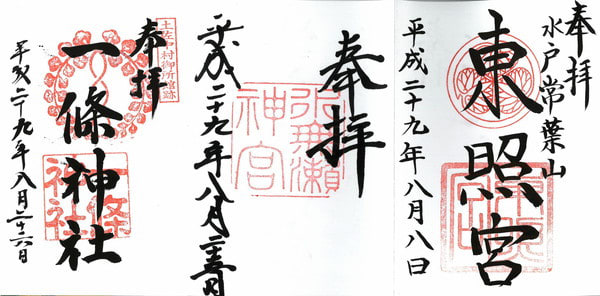 奉拝
水戸常葉山
東照宮
平成二十九年八月八日
奉拝
水無瀬
神宮
平成二十九年八月
奉拝
土佐中村御所跡
一條神社
一条
神社
平成二十九年八月二十六日